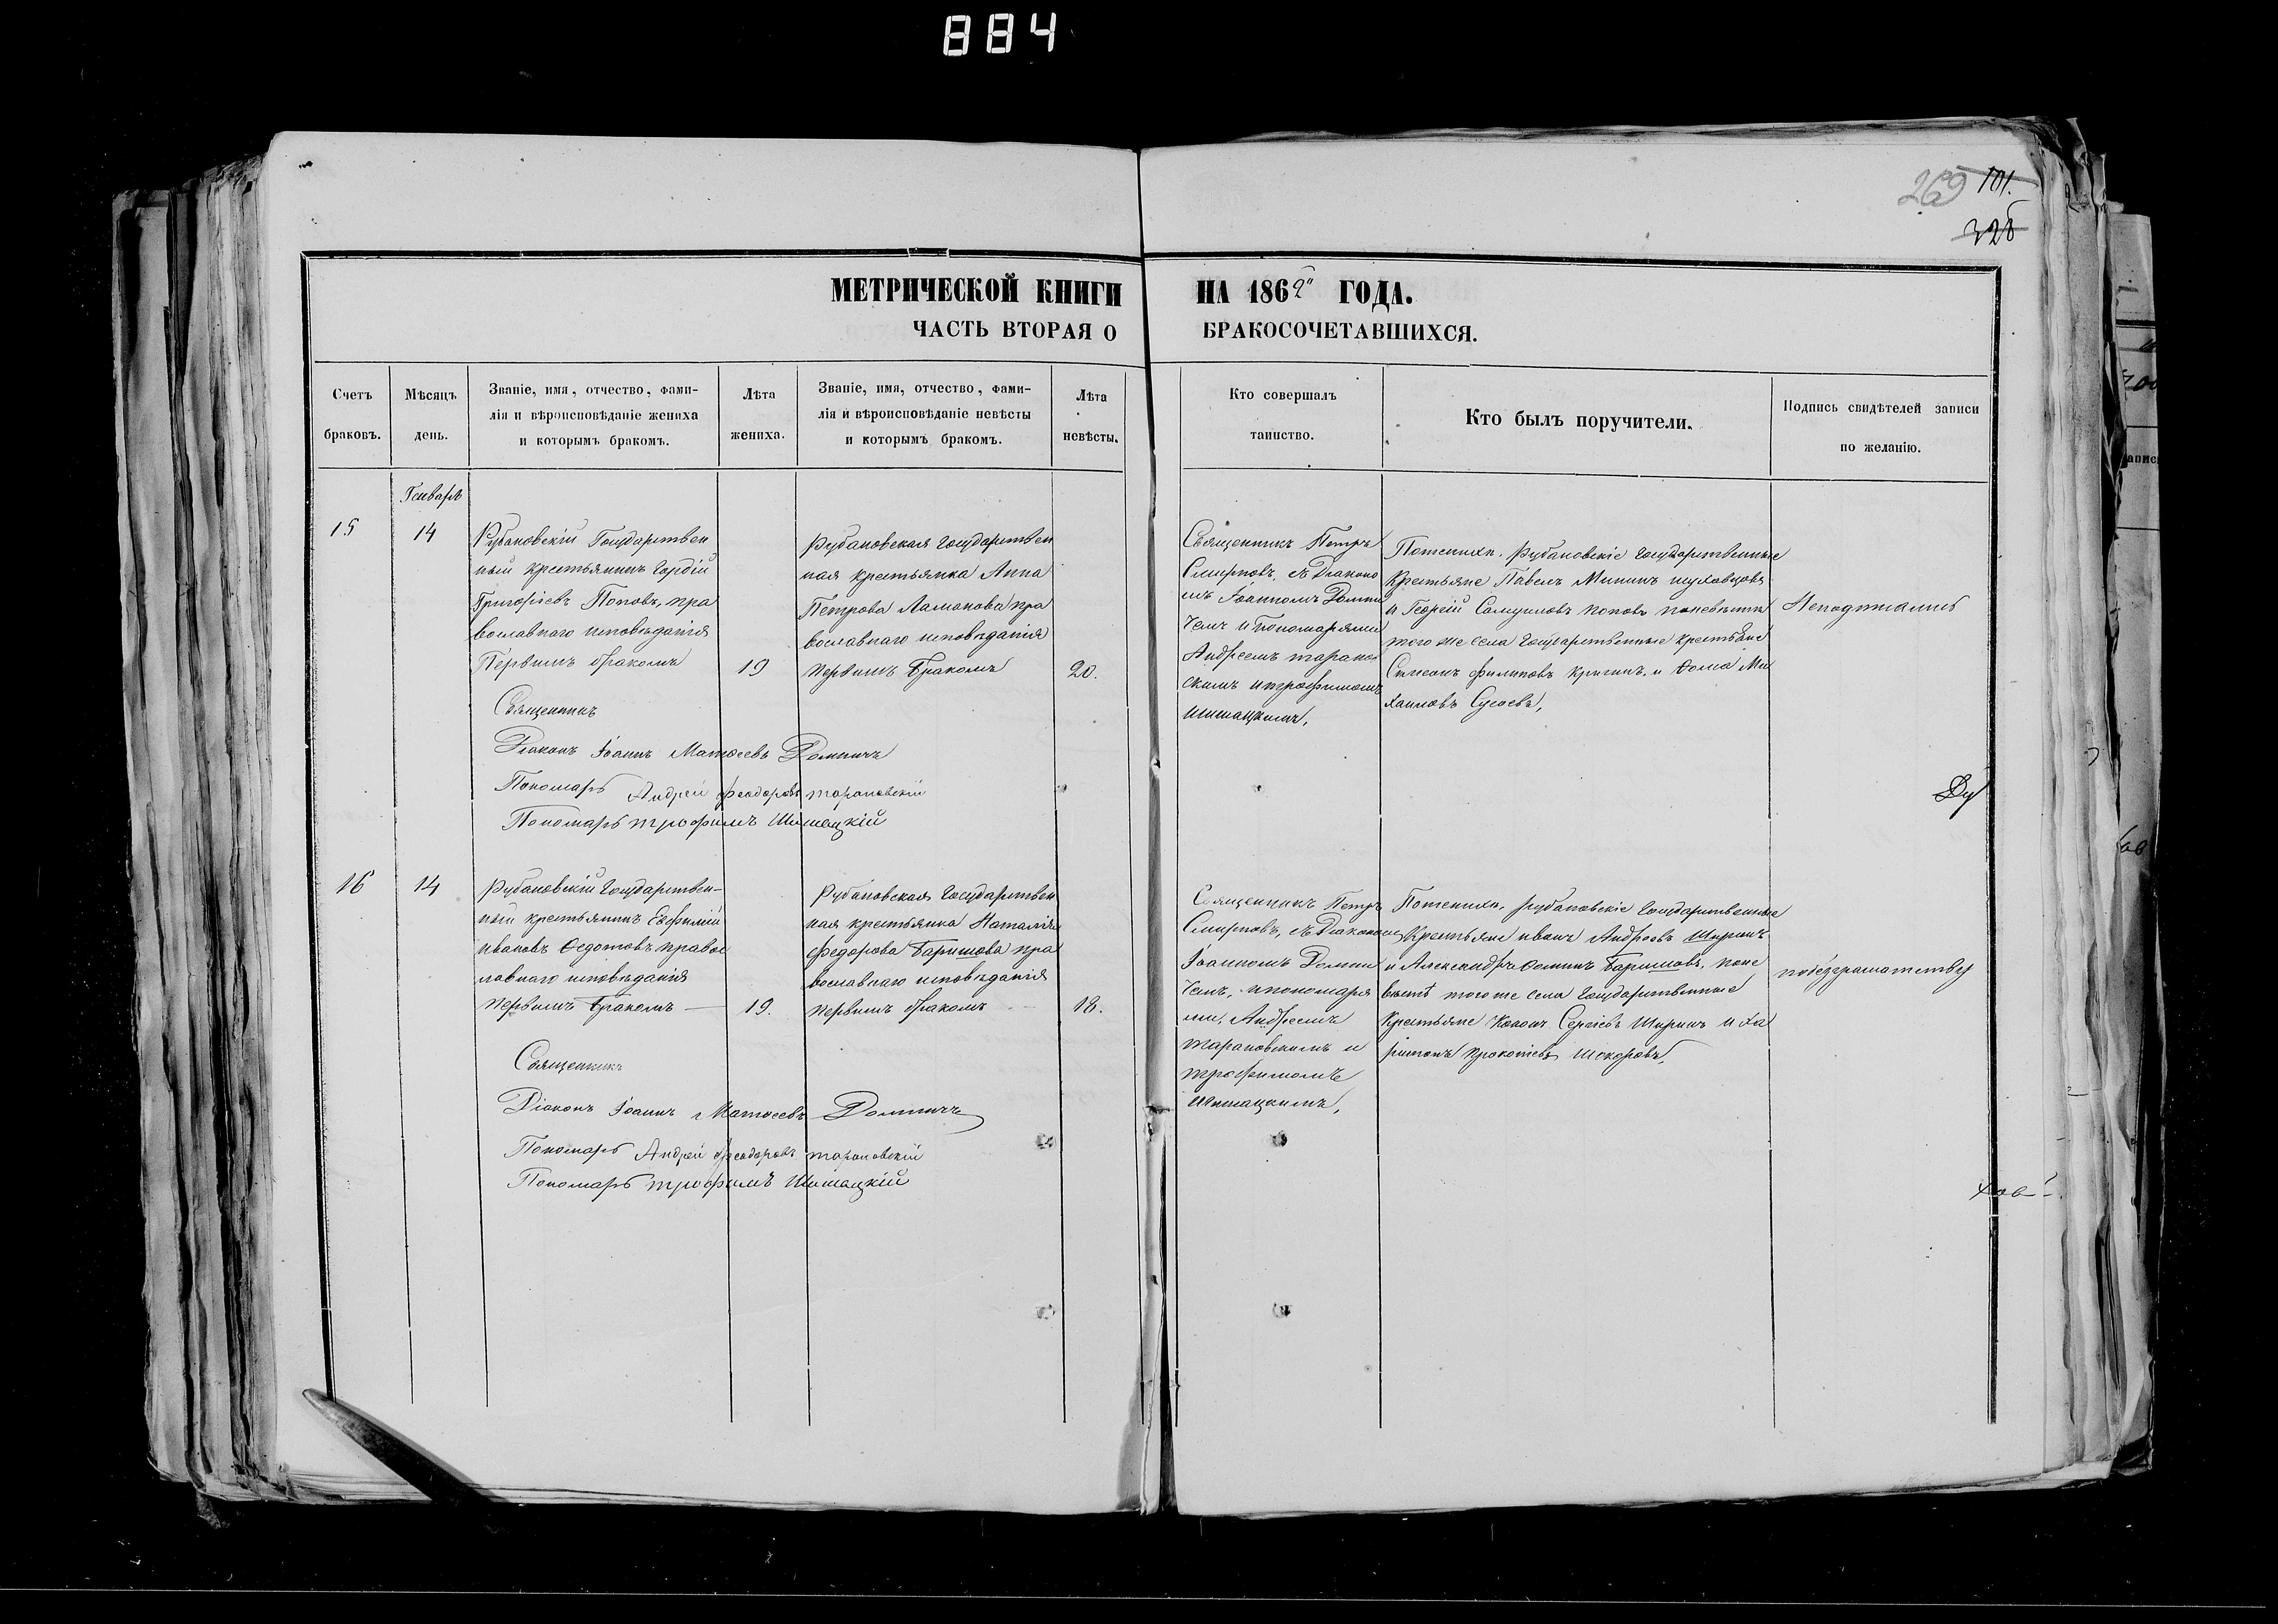 884
269 101.
328
МЕТРИЧЕСКОЙ КНИГИ НА 1862 ГОДА.
ЧАСТЬ ВТОРАЯ О БРАКОСОЧЕТАВШИХСЯ.
Счетъ браковъ.
Мѣсяцъ день.
Званіе, имя, отчество, фами-
лія и вѣроисповѣданіе жениха
и которымъ бракомъ.
Лѣта жениха.
Званіе, имя, отчество, фами-
лія и вѣроисповѣданіе невѣсты
и которымъ бракомъ.
Лѣта невѣсты.
Кто совершалъ
таинство.
Кто былъ поручители.
Подпись свидѣтелей записи
по желанію.
Генваря
15
14
Рубановскій Государствен
ный крестьянинъ Гордій
Григоріевъ Поповъ, пра
вославнаго исповѣданія
Первымъ бракомъ
19
Рубановская Государствен
ная крестьянка Анна
Петрова Ламонова пра
вославнаго исповѣданія
первымъ бракомъ
20.
Священникъ Петръ
Смирновъ, съ Діаконо
мъ Іоанномъ Домни
чемъ и пономарями
Андреемъ таранов
скимъ и трофимомъ
Шишацкимъ,
Поженихѣ, Рубановскіе Государственные
Крестьяне Павелъ Мининъ
и Георгій Самуиловъ поповъ поневѣстѣ
того же села Государственные крестьяне
Симеонъ филиповъ и Фома Ми
хаиловъ
Неподписались
Священникъ
Діаконъ Іоаннъ Матфеевъ Домничъ
Пономарь Андрей феодоровъ тарановскій
Пономарь трофимъ Шишацкій
Ду
16
14
Рубановскій Государствен-
ный крестьянинъ Евфимій
Ивановъ Федотовъ правос
лавнаго исповѣданія
первымъ бракомъ —
19.
Рубановская Государствен
ная крестьянка Наталія
федорова Баришова пра
вославнаго исповѣданія
первымъ бракомъ
18.
Священникъ Петръ
Смирновъ, съ Діакономъ
Іоанномъ Домни
чемъ, и пономаря
ми, Андреемъ
тарановскимъ и
трофимомъ
Шишацкимъ,
Поженихѣ, Рубановскіе Государственные
Крестьяне иванъ Андреевъ Ширинъ
и Александръ Фоминъ Баришовъ, поне
вѣстѣ того же села Государственные
Крестьяне Кононъ Сергіевъ Ширинъ и Ха
ритонъ
побезграмотству
Священникъ
Діаконъ Іоаннъ Матфеевъ Домничъ
Пономарь Андрей феодоровъ тарановскій
Пономарь трофимъ Шишацкій